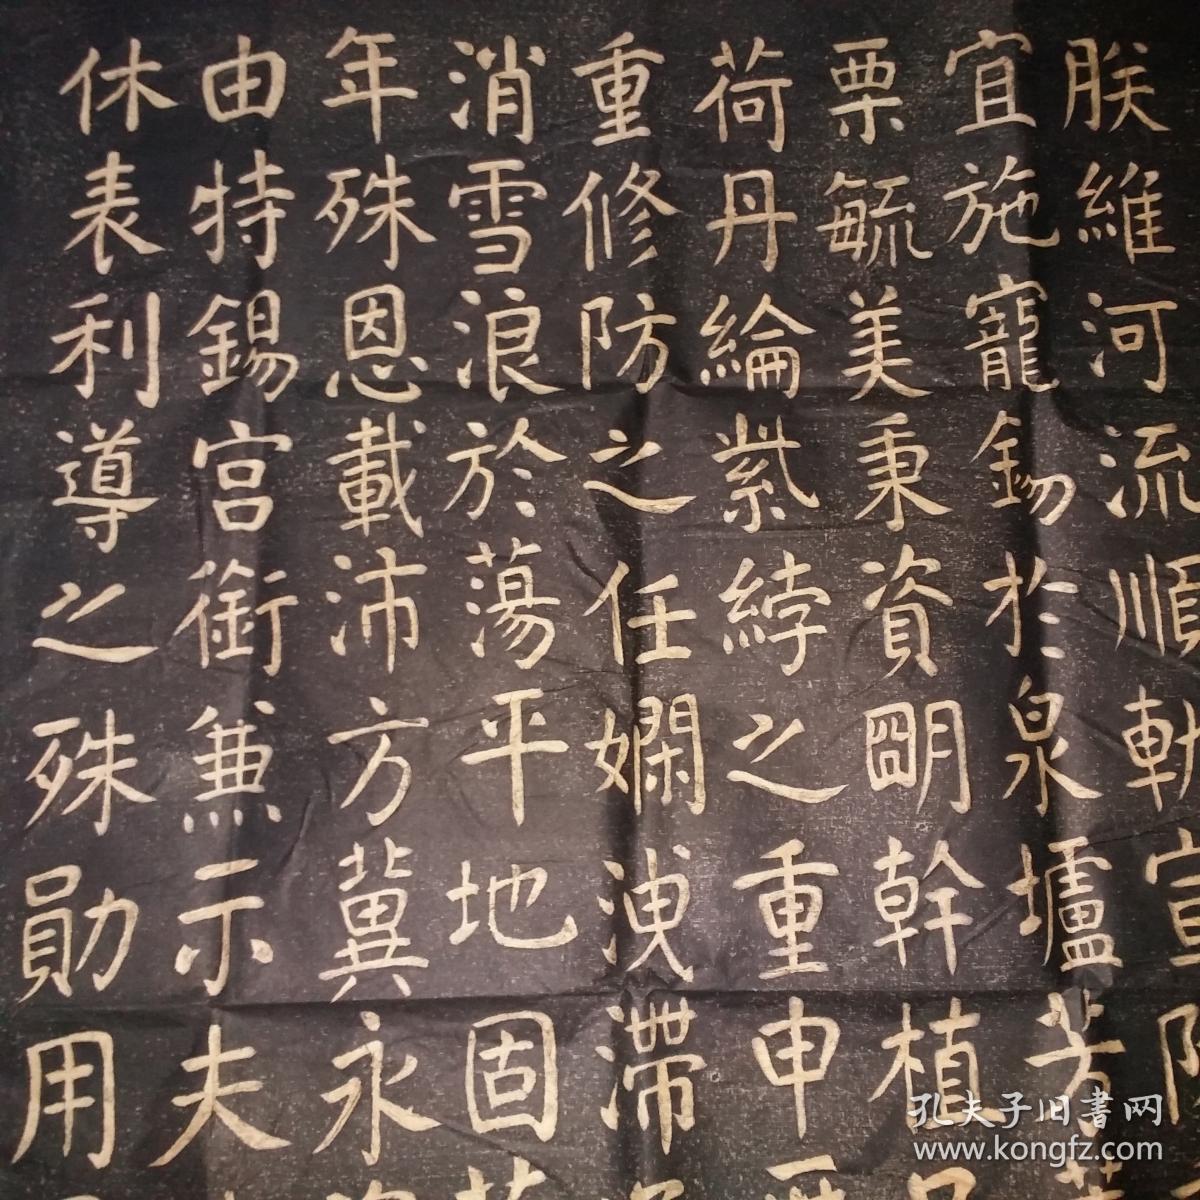 朕維河流順軌宣
宜施寵錫於泉壚芳
栗毓美秉資明幹植
荷丹綸紫綍之重申
重修防之任嫻洩滯
消雪浪於蕩平地固
年殊恩載沛方冀永
由特錫宮銜兼示夫
休表利導之殊勛用
孔夫子旧書网
www.kongfz.com